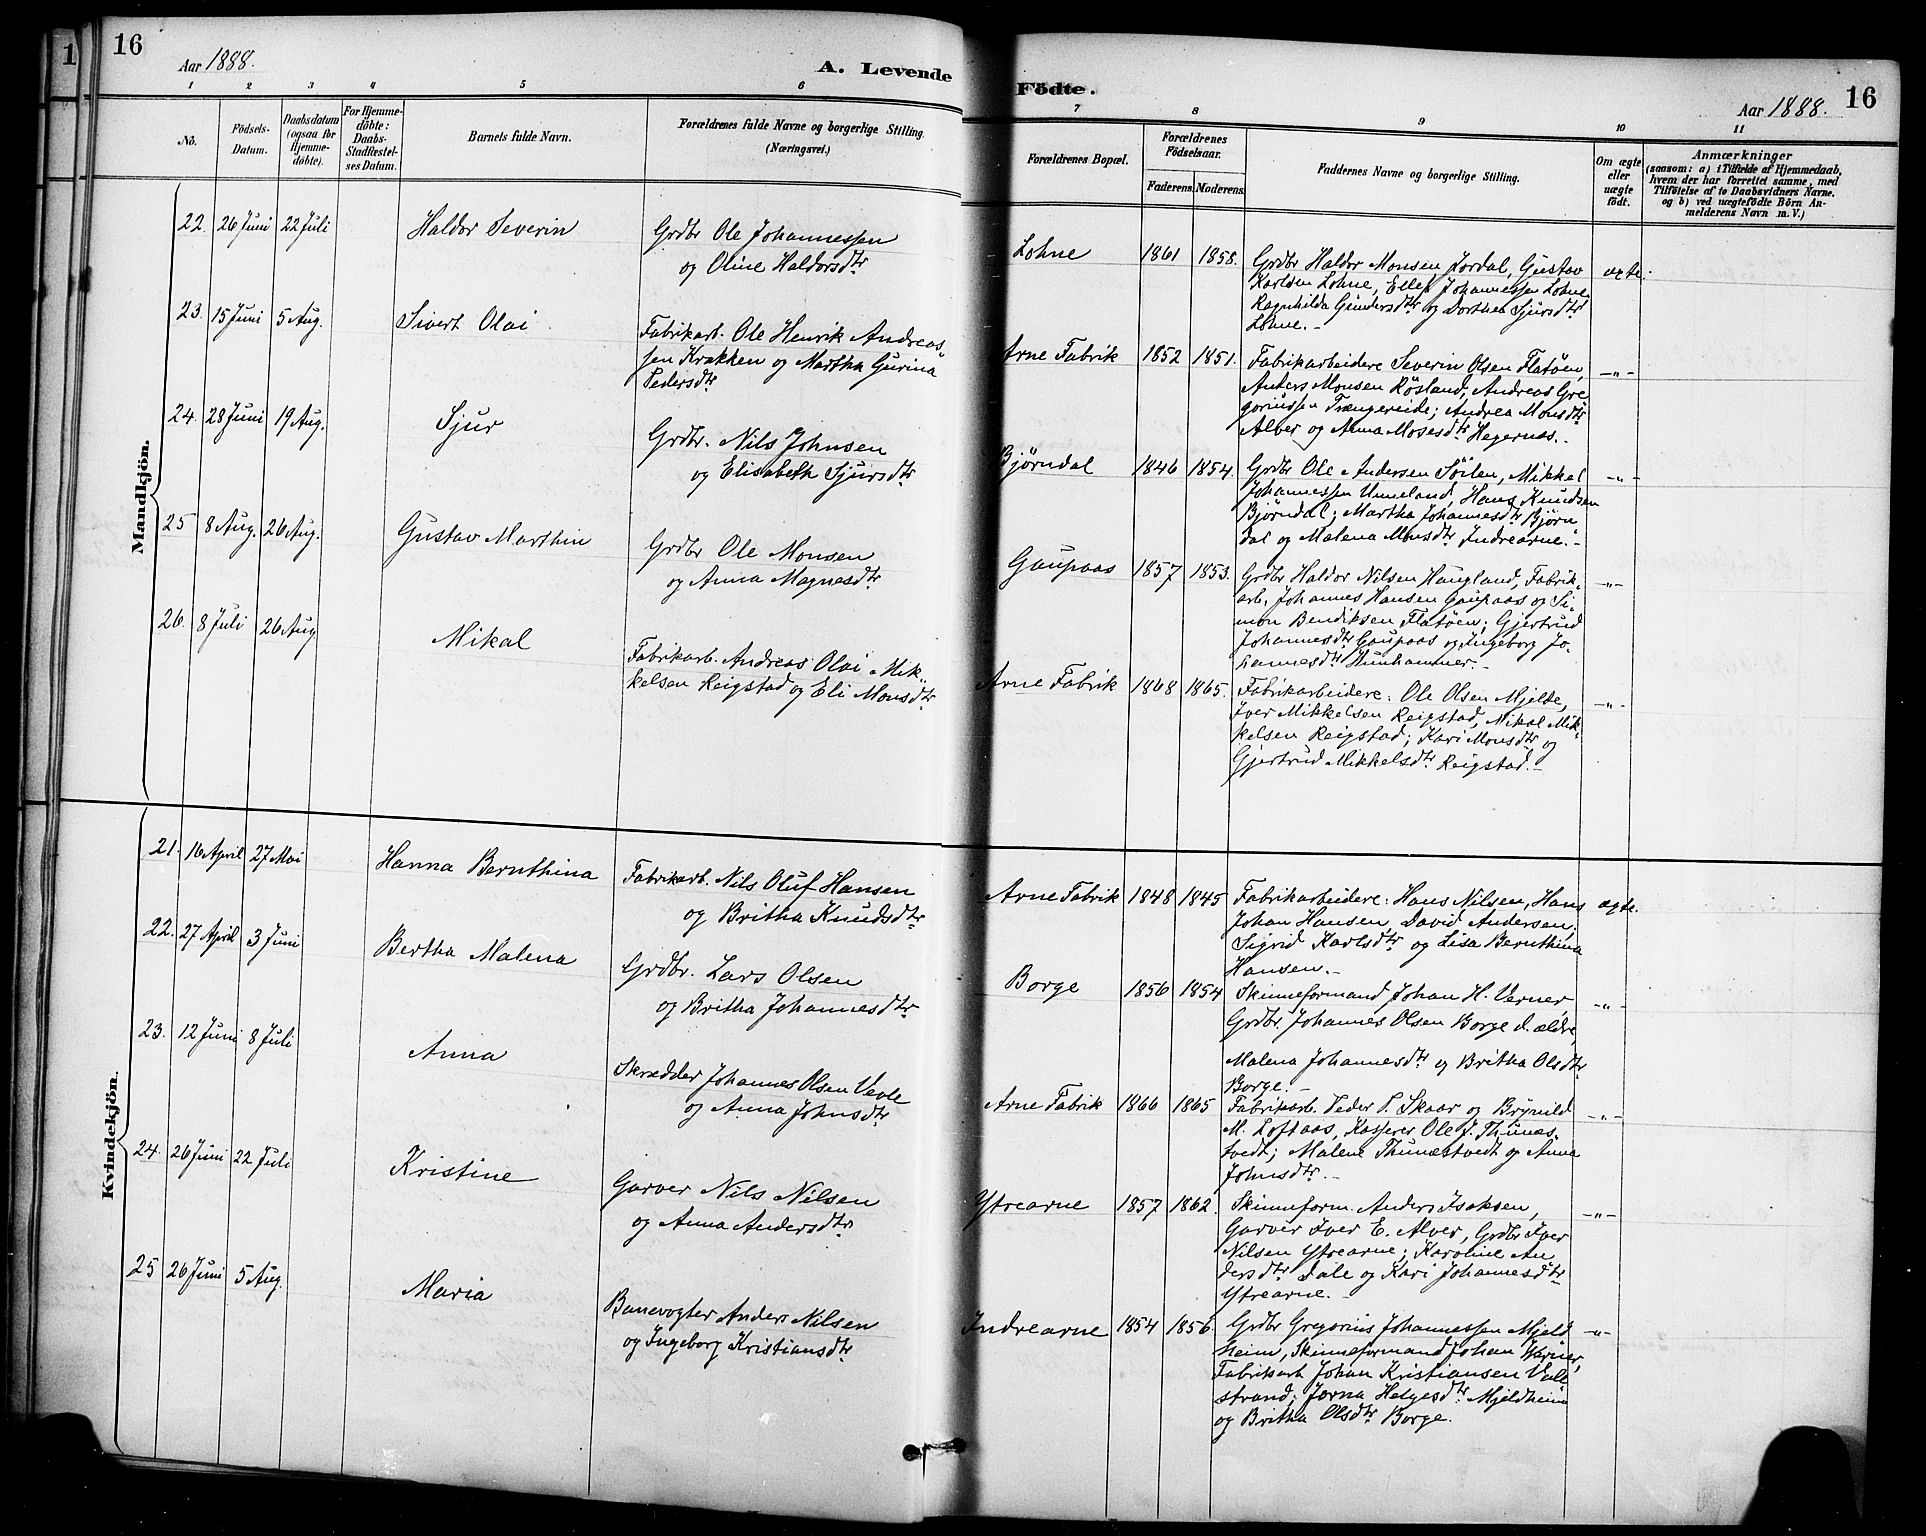 16
Aar 1888.
A. Levende
1 2 3 4 5 6
No.
Födsels-
Datum.
Daabsdatum
(ogsaa for
Hjemme-
döbte).
For Hjemme-
döbte:
Daabs-
Stadfæstel-
ses Datum.
Barnets fulde Navn.
Forældrenes fulde Navne og borgerlige Stilling.
(Næringsvei.)
Mandkjön.
22. 26 Juni 22 Juli Haldor Severin
Grdbr Ole Johannessen
og Oline Haldorsdtr
23. 15 Juni 5 Aug. Sivert Olai
Fabrikarb. Ole Henrik Andreas-
sen Krakken og Martha Gurina
Pedersdtr
24. 28 Juni 19 Aug. Sjur
Grdbr. Nils Johnsen
og Elisabeth Sjursdtr
25 8 Aug. 26 Aug. Gustav Marthin
Grdbr Ole Monsen
og Anna Magnesdtr
26. 8 Juli 26 Aug Mikal
Fabrikarb. Andreas Olai Mik-
kelsen Reigstad og Eli Monsdtr
Kvindekjön.
21. 16 April 27 Mai Hanna Bernthina
Fabrikarb. Nils Oluf Hansen
og Britha Knudsdtr
22. 27 April 3 Juni Bertha Malena
Grdbr. Lars Olsen
og Britha Johannesdtr
23. 12 Juni 8 Juli Anna
Skrædder Johannes Olsen Vevle
og Anna Johnsdtr
24. 26 Juni 22 Juli Kristine
Garver Nils Nilsen
og Anna Andersdtr
25 26 Juni 5 Aug. Maria
Banevogter Anders Nilsen
og Ingeborg Kristiansdtr
Födte.
Aar 1888.
16
7 8 9 10 11
Forældrenes Bopæl.
Forældrenes
Födselsaar.
Faderens. Moderens.
Faddernes Navne og borgerlige Stilling.
Om ægte
eller
uægte
födt.
Anmærkninger
(saasom: a) i Tilfælde af Hjemmedaab,
hvem der har forrettet samme, med
Tilföielse af to Daabsvidners Navne.
og b) ved uægtefödte Börn An-
melderens Navn m. V.)
Lohne 1861 1858. Grdbr Haldor Monsen Jordal, Gustav ægte.
Karlsen Lohne, Ellef Johannessen Lohne,
Ragnhilda Gundersdtr og Dorthea Sjursdtr
Lohne.-
Arne Fabrik 1852 1851. Fabrikarbeidere Severin Olsen Flatøen, -"-
Anders Monsen Røsland, Andreas Gre
goriussen Trængereide; Andrea Monsdtr
Alver og Anna Mosesdtr Hegernes.-
Bjørndal 1846 1854 Grdbr Ole Andersen Søilen, Mikkel -"-
Johannessen Unneland, Hans Knudsen
Bjørndal; Martha Johannesdtr Bjørn
dal og Malena Monsdtr Indrearne.-
Gaupaas 1857 1853. Grdbr Haldor Nilsen Haugland, Fabrik- -"-
arb. Johannes Hansen Gaupaas og Si-
mon Bendiksen Flatøen; Gjertrud
Johannesdtr Gaupaas og Ingeborg Jo-
hannesdtr Hunhammer.-
Arne Fabrik 1868 1865. Fabrikarbeidere: Ole Olsen Mjelde, -"-
Iver Mikkelsen Reigstad, Mikal Mik-
kelsen Reigstad; Kari Monsdtr og
Gjertrud Mikkelsdtr Reigstad.-
Arne Fabrik 1848 1845 Fabrikarbeidere: Hans Nilsen, Hans ægte.
Johan Hansen, David Andersen;
Sigrid Karlsdtr og Lisa Bernthina
Hansen.-
Borge 1856 1854 Skinneformand Johan H. Verner, -"-
Grdbr. Johannes Olsen Borge d. ældre,
Malena Johannesdtr og Britha Olsdtr
Borge.-
Arne Fabrik 1866 1865 Fabrikarb. Peder P. Skaar og Brynild -"-
M. Loftaas, Kasserer Ole J. Thunæs-
tvedt; Malene Thunæstvedt og Anna
Johnsdtr.-
Ytrearne 1857 1862. Skinneform. Anders Isaksen, -"-
Garver Iver E. Alver, Grdbr Iver
Nilsen Ytrearne; Karoline An
dersdtr Dale og Kari Johannesdtr
Ytrearne.-
Indrearne 1854 1856. Grdbr Gregorius Johannessen Mjeld -"-
heim, Skinneformand Johan Verner,
Fabrikarb Johan Kristiansen Valle
strand; Jorna Helgesdtr Mjeldheim
og Britha Olsdtr Borge.